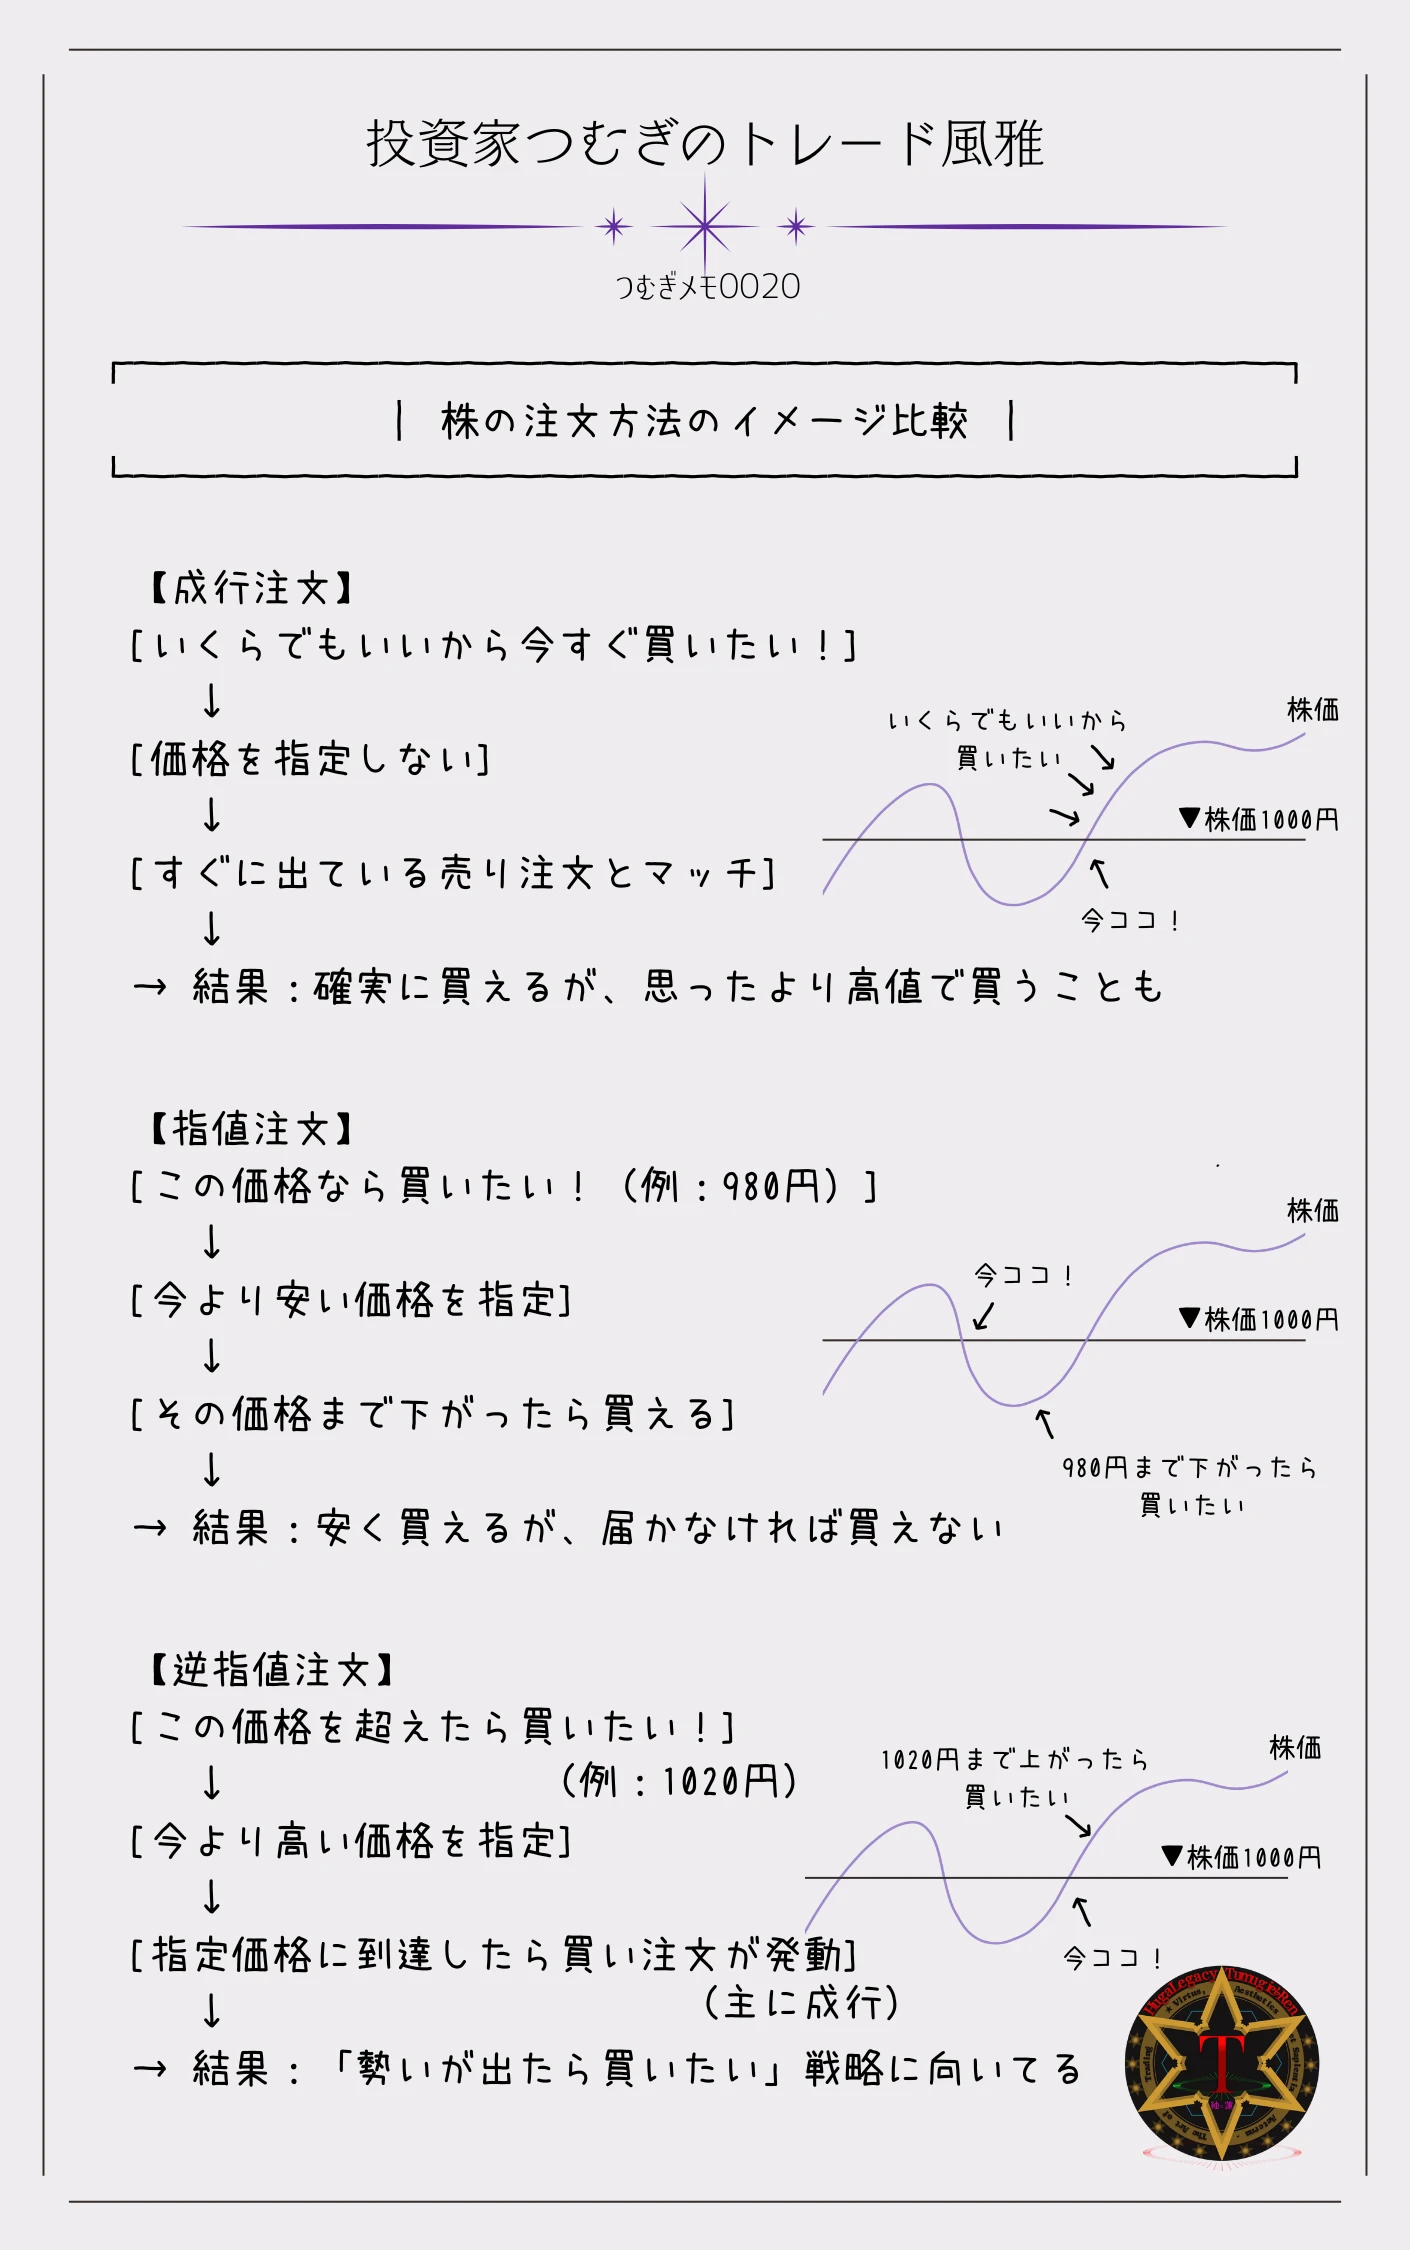 投資家つむぎのトレード風雅
つむぎメモ0020
| 株の注文方法のイメージ比較 |
【成行注文】
[いくらでもいいから今すぐ買いたい！]
↓
[価格を指定しない]
↓
[すぐに出ている売り注文とマッチ]
↓
→ 結果：確実に買えるが、思ったより高値で買うことも
株価
いくらでもいいから
買いたい
▼株価1000円
今ココ！
【指値注文】
[この価格なら買いたい！（例：980円）]
↓
[今より安い価格を指定]
↓
[その価格まで下がったら買える]
↓
→ 結果：安く買えるが、届かなければ買えない
株価
今ココ！
▼株価1000円
980円まで下がったら
買いたい
【逆指値注文】
[この価格を超えたら買いたい！]
↓ （例：1020円）
[今より高い価格を指定]
↓
[指定価格に到達したら買い注文が発動]
↓ （主に成行）
→ 結果：「勢いが出たら買いたい」戦略に向いてる
株価
1020円まで上がったら
買いたい
▼株価1000円
今ココ！
HugaLegacy
Virtus,
Aesthetics
Trading
The Art of
T